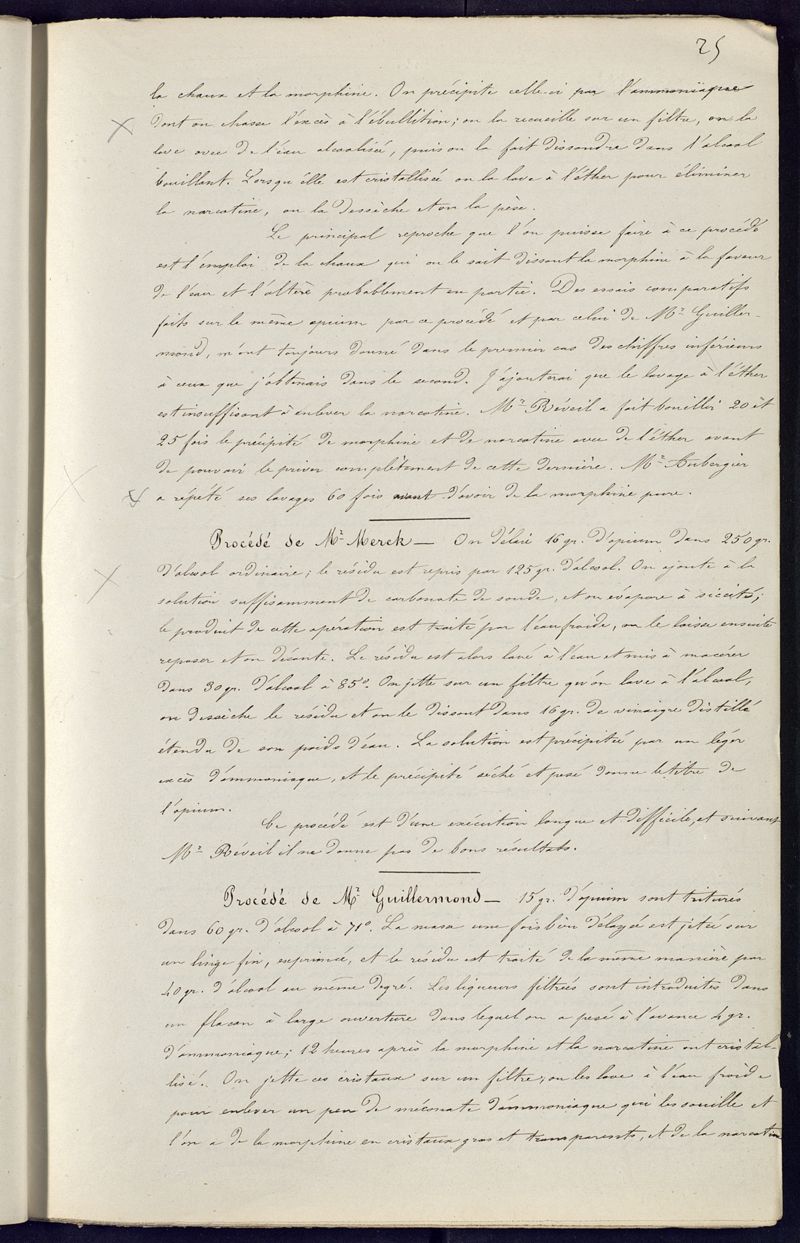 25
la chaux et la morphine. On précipite celle-ci par l'ammoniaque
dont on chasse l'excès à l'ébullition; on la recueille sur un filtre, on la
lave avec de l'eau alcoolisée, puis on la fait dissoudre dans l'alcool
bouillant. Lorsqu'elle est cristallisée on la lave à l'éther pour éliminer
la narcotine, on la dessèche et on la pèse.
Le principal reproche que l'on puisse faire à ce procédé
est l'emploi de la chaux qui on le sait dissout la morphine à la faveur
de l'eau et l'altère probablement en partie. Des essais comparatifs
faits sur le même opium par ce procédé et par celui de Mr. Guiller-
mond, m'ont toujours donné dans le premier cas des chiffres inférieurs
à ceux que j'obtenais dans le second. J'ajouterai que le lavage à l'éther
est insuffisant à enlever la narcotine. Mr. Réveil a fait bouillir 20 et
25 fois le précipité de morphine et de narcotine avec de l'éther avant
de pouvoir le priver complètement de cette dernière. Mr. Aubergier
a répété ses lavages 60 fois avant d'avoir de la morphine pure.
Procédé de Mr. Merck — On délaie 16 gr. d'opium dans 250 gr.
d'alcool ordinaire; le résidu est repris par 125 gr. d'alcool. On ajoute à la
solution suffisamment de carbonate de soude, et on évapore à siccité;
le produit de cette opération est traité par l'eau froide, on le laisse ensuite
reposer et on décante. Le résidu est alors lavé à l'eau et mis à macérer
dans 30 gr. d'alcool à 85°. On jette sur un filtre qu'on lave à l'alcool,
on dessèche le résidu et on le dissout dans 16 gr. de vinaigre distillé
étendu de son poids d'eau. La solution est précipitée par un léger
excès d'ammoniaque, et le précipité séché et pesé donne le titre de
l'opium.
Ce procédé est d'une exécution longue et difficile, et suivant
Mr. Réveil il ne donne pas de bons résultats.
Procédé de Mr. Guillermond — 15 gr. d'opium sont triturés
dans 60 gr. d'alcool à 71°. La masse une fois bien délayée est jetée sur
un linge fin, exprimée, et le résidu est traité de la même manière par
40 gr. d'alcool au même degré. Les liqueurs filtrées sont introduites dans
un flacon à large ouverture dans lequel on a pesé à l'avance 4 gr.
d'ammoniaque; 12 heures après la morphine et la narcotine ont cristal-
lisé. On jette ces cristaux sur un filtre, on les lave à l'eau froide
pour enlever un peu de méconate d'ammoniaque qui les souille et
l'on a de la morphine en cristaux gros et transparents, et de la narcotine